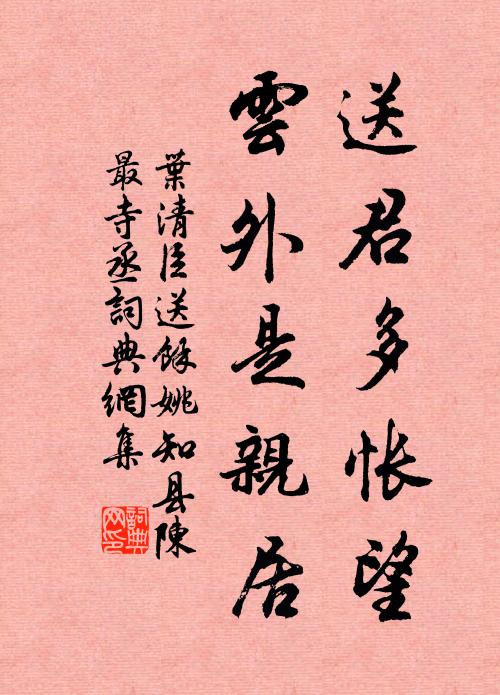 送君多悵望
雲外是親居
葉清臣送餘姚知县陳
最寺丞詞典網集
詞典
网印